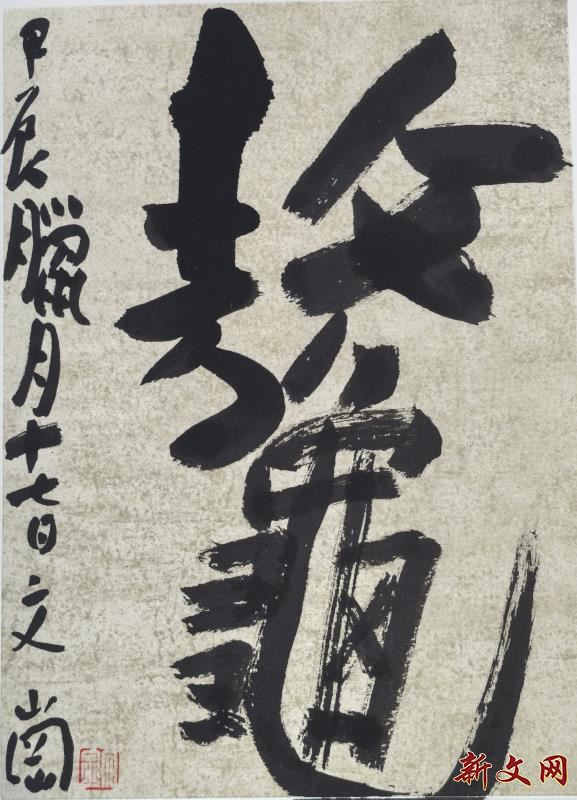 鼇
甲辰臘月十七日文崗
新文网